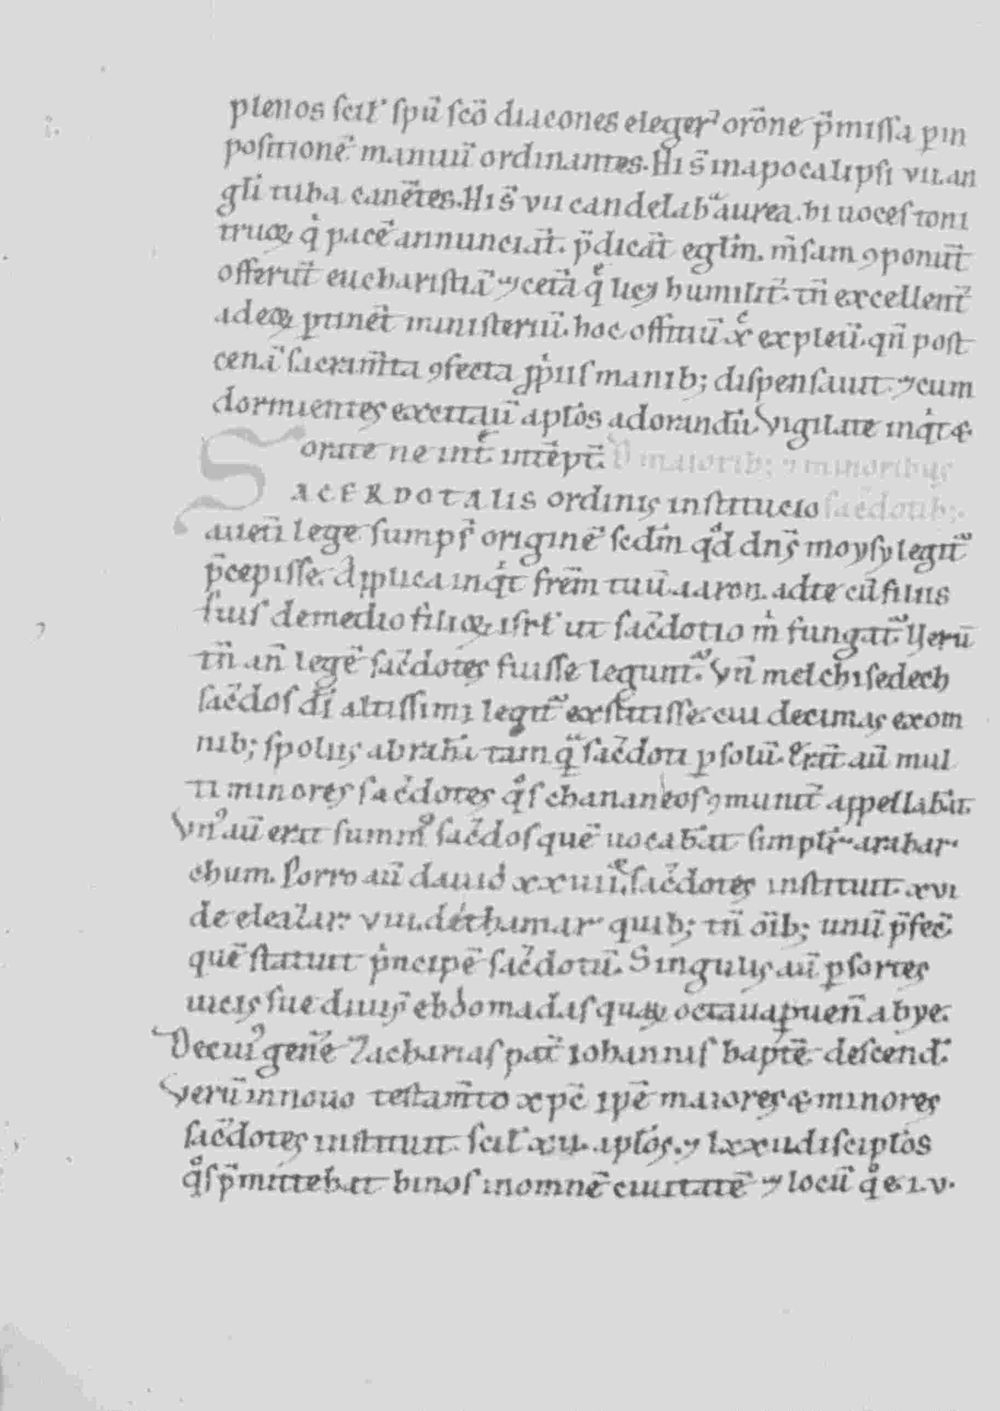 plenos scil' spū scō diacones eleger' orōne p̄missa p in
positionē manuū ordinantes. Hi s̄ in apocalipsi vii. an
gli tuba canētes. Hi s̄ vii candelabᵃ aurea. hi uoces toni
truoꝝ qⁱ pacē annunciāt. p̄dicāt eglⁱm. m̄sam ꝯponūt
offerūt eucharistiā ⁊ cetā q̄ licꝫ humilit̄. tn̄ excellent̄
ad eoꝝ ꝑtinēt ministeriū. hoc offitiū xᶜ expleuᵗ. qn̄ post
cenā sacram̄ta ꝯfecta ꝓpⁱis manib; dispensauit. ⁊ cum
dormientes excitauᵗ aplōs ad orandū. Vigilate inqⁱt &
orate ne int̄. in tēpt̄. D maiorib; ⁊ minoribus
SACERDOTALIS ordinis institucio sac̄dotib;.
a uet̄i lege sumpˢ originē scdm qᵒd dn̄s moysy legit᷑
p̄cepisse. Applica inqⁱt frēm tuū aaron. ad te cū filiis
suis de medio filioꝝ isrl' ut sac̄dotio mⁱ fungat᷑. Verū
tn̄ an̄ legē sac̄dotes fuisse legunt᷑. Vn̄ melchisedech
sac̄dos dī altissimi legit᷑ exstitisse. cui decimas ex om
nib; spoliis abrahā tamqᵃ sac̄doti ꝑsoluᵗ. Erāt aū mul
ti minores sac̄dotes qᵒs chananeos ꝯmunit̄ appellabāt.
Vn' aū erat summ' sac̄dos quē uocabāt simplr̄ arabar
chum. Porro aū dauid xxiiii. sac̄dotes instituit. xvi
de eleazar. viii. de thamar quib; tn̄ oīb; unū p̄fec̄
quē statuit pⁱncipē sac̄dotū. Singulis aū ꝑ sortes
uicis sue diuisᵗ ebdomadas quaꝝ octaua ꝑuen̄ abye.
De cui' gen̄e Zacharias pat̄ iohannis bapt̄e descend̄.
Verū in nouo testam̄to xpc̄ ipē maiores & minores
sac̄dotes instituit. scil' xii. aplōs. ⁊ lxxii discip̄los
qᵒs p̄mittebat binos in omnē ciuitatē ⁊ locū qᵒ e. i. v.